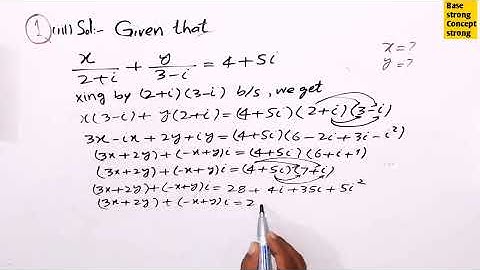 ① (iii) Sol:- Given that
x/(2+i) + y/(3-i) = 4+5i
xing by (2+i)(3-i) b/s, we get
x(3-i) + y(2+i) = (4+5i)(2+i)(3-i)
3x-ix+2y+iy = (4+5i)(6-2i+3i-i²)
(3x+2y)+(-x+y)i = (4+5i)(6+i+1)
(3x+2y)+(-x+y)i = (4+5i)(7+i)
(3x+2y)+(-x+y)i = 28+4i+35i+5i²
(3x+2y)+(-x+y)i = 2
x=?
y=?
Base
strong
Concept
strong